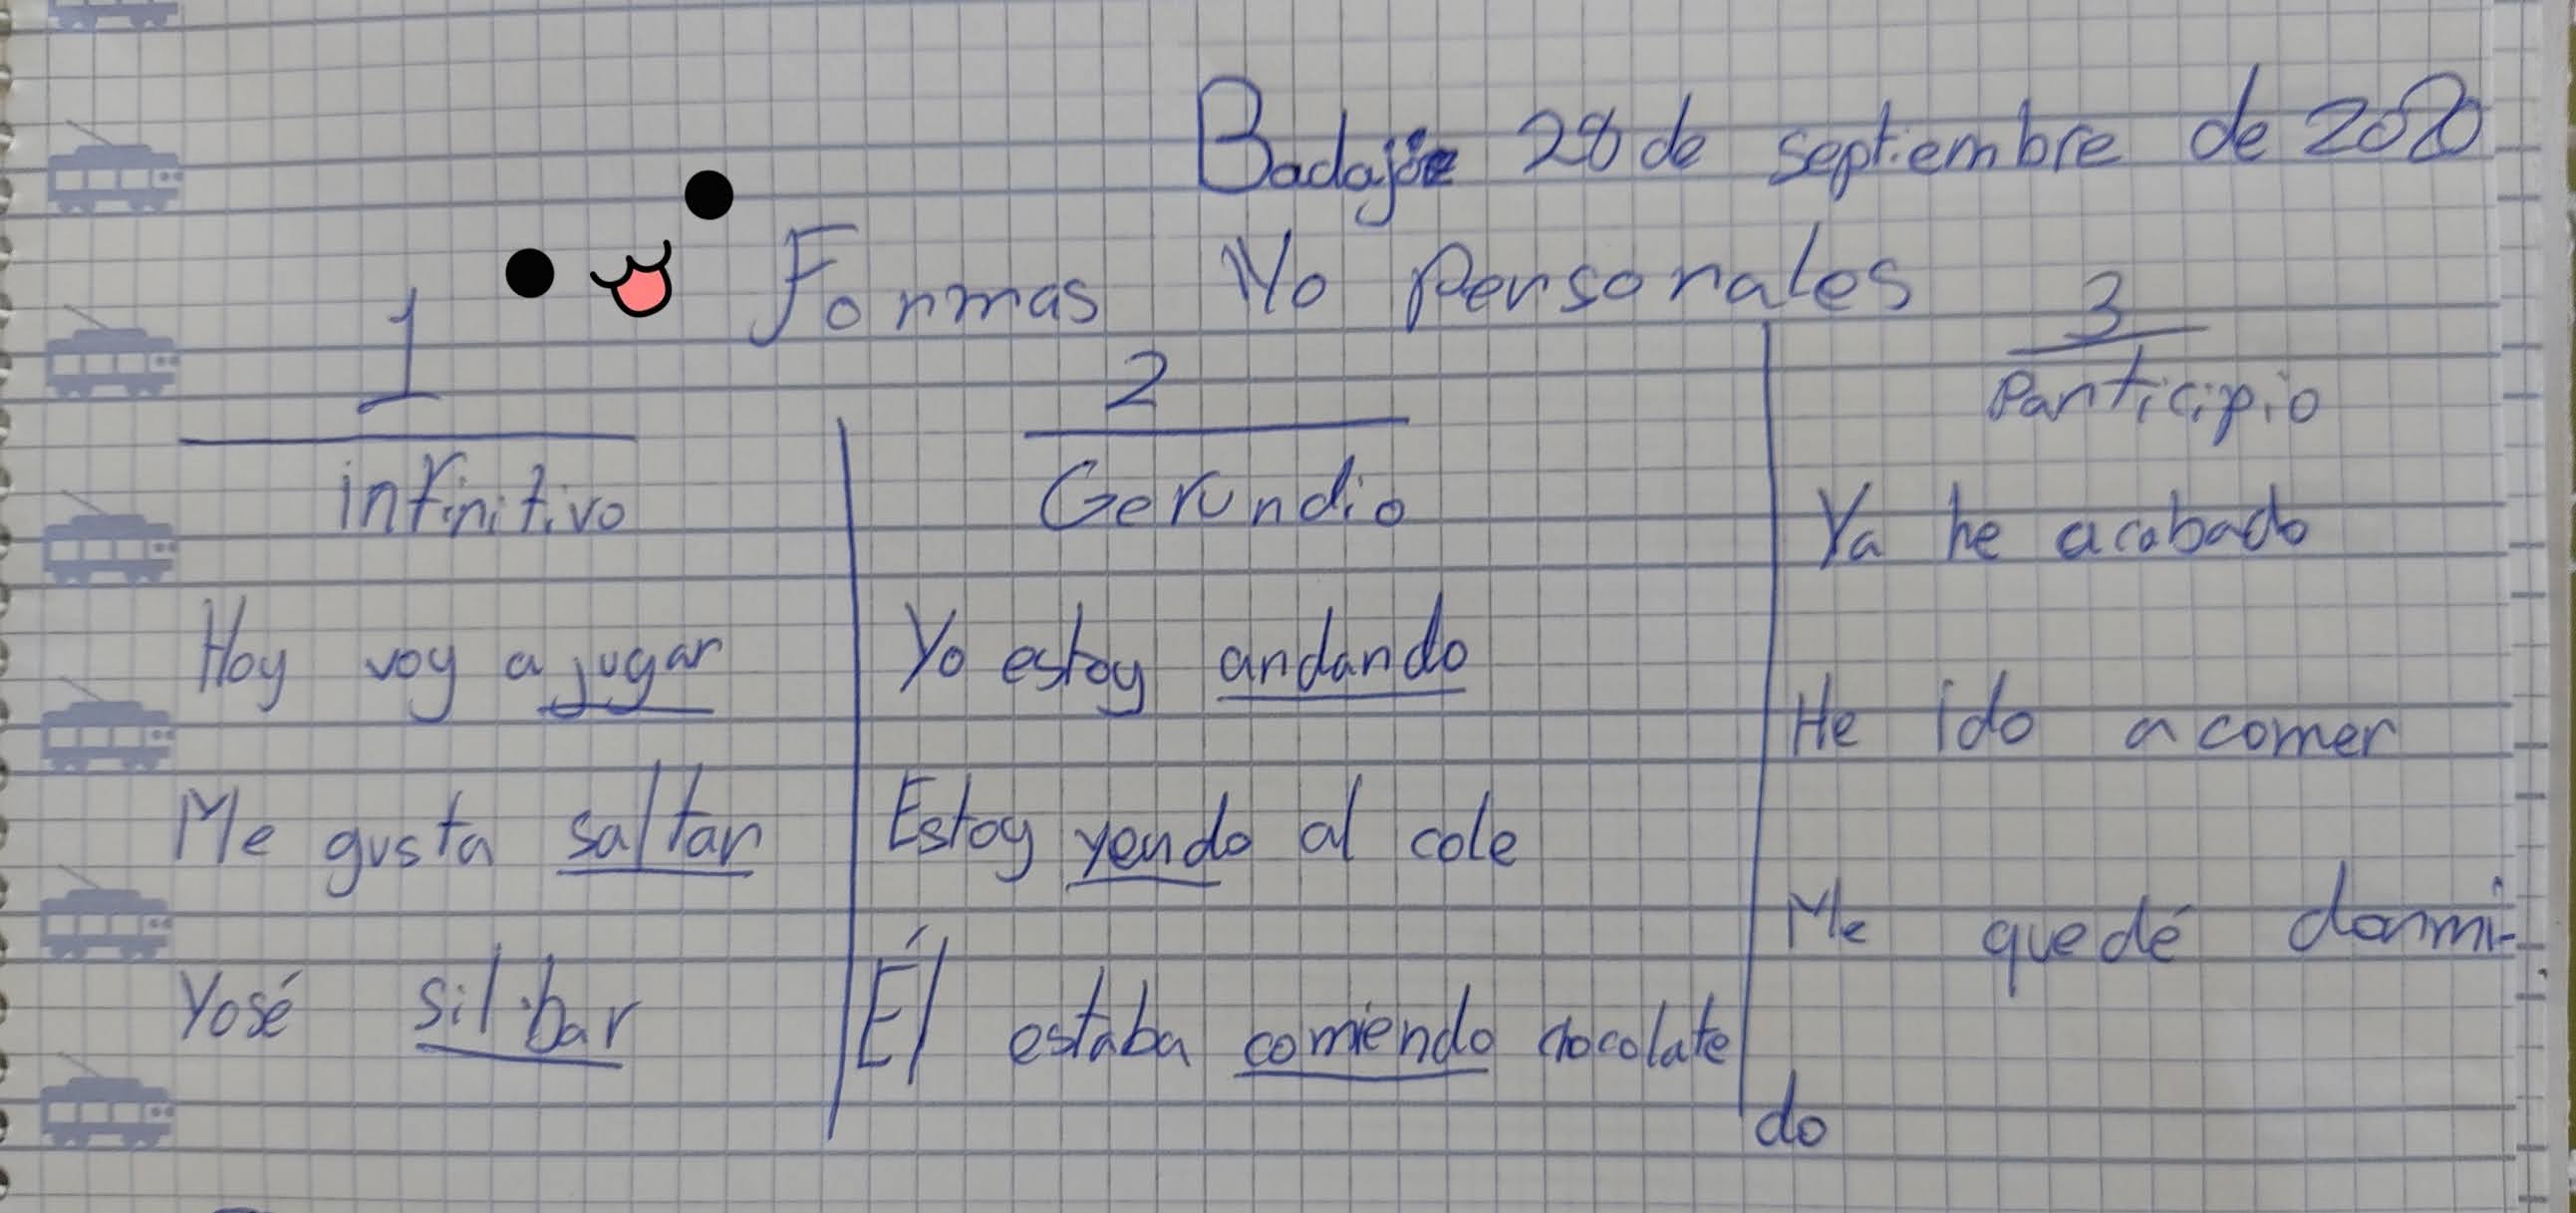 Badajoz 28 de septiembre de 2020
Formas No personales
1
infinitivo
Hoy voy a jugar
Me gusta saltar
Yo sé silbar
2
Gerundio
Yo estoy andando
Estoy yendo al cole
Él estaba comiendo chocolate
3
Participio
Ya he acabado
He ido a comer
Me quedé dormi-
do